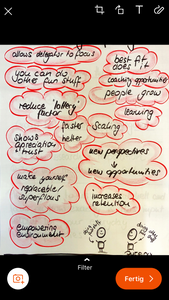 allows delegator to focus
you can do
other fun stuff
reduce 'lottery'
factor
shows
appreciation
trust
make yourself
replaceable/
superflous
empowering
environment
best fit
does it
coaching opportunities
people grow
learning
faster
better
scaling
new perspectives
new opportunities
increases
retention
Filter
Fertig